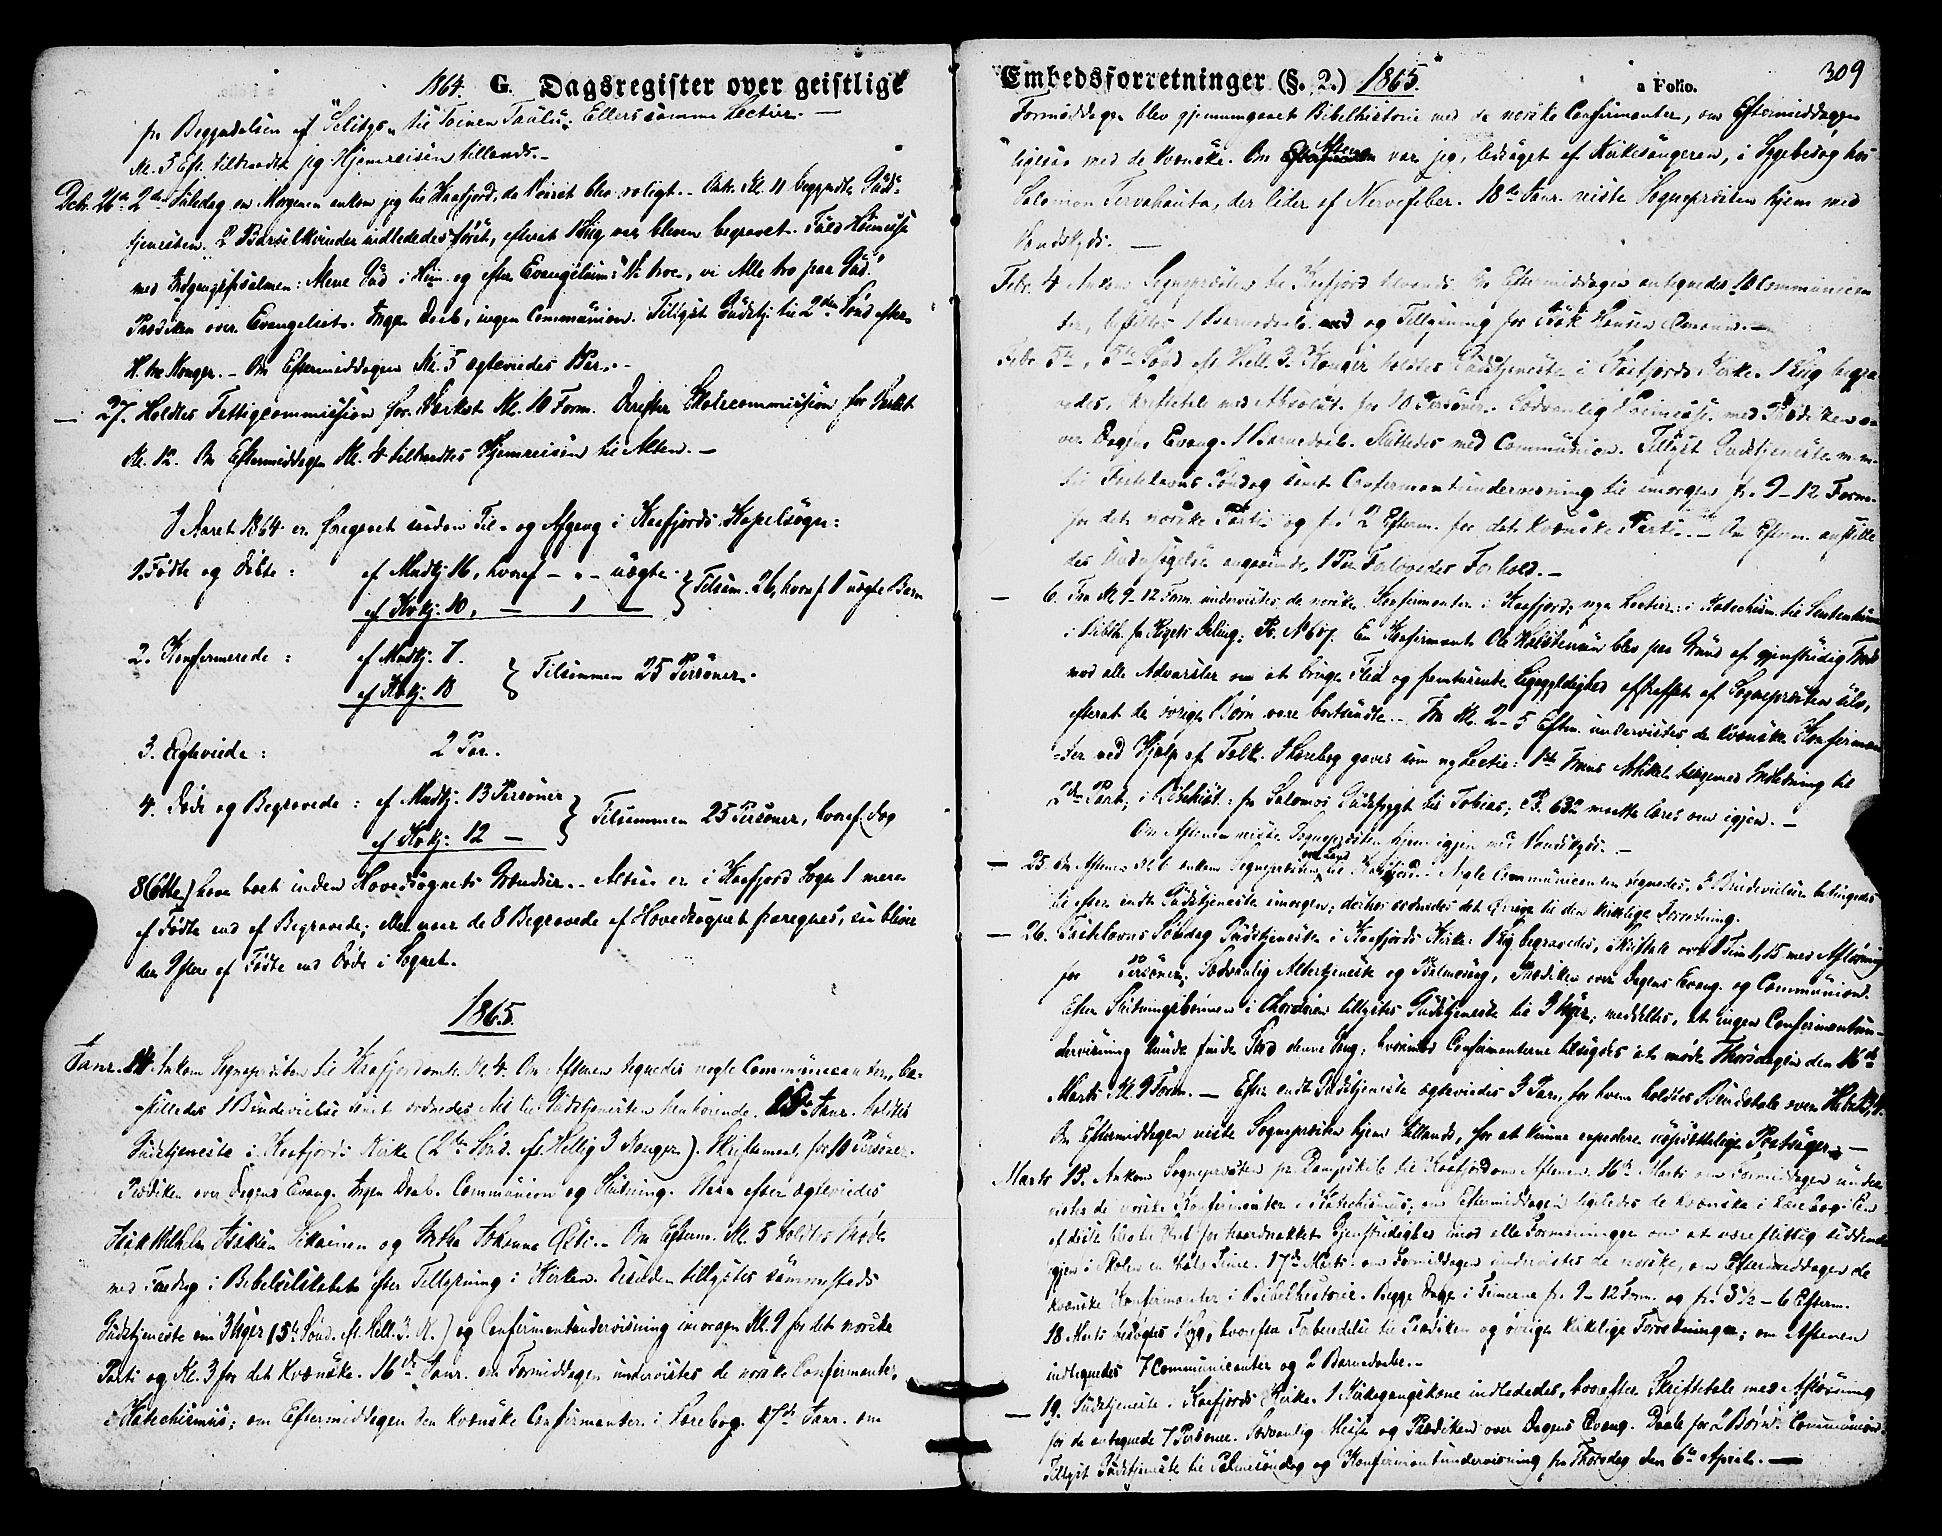 1864. G. Dagsregister over geistlige
fra Begyndelsen af "Seligh. til Toinen Taulu. Ellers samme Lectier. —
Kl. 5 Eft. tiltraadte jeg Hjemreisen tillands. —
Dcbr. 26de 2den Juledag om Morgenen ankom jeg til Kaafjord, da Veiret blev roligt. — Omtr. Kl. 11 begyndte Guds-
tjenesten. 2 Barselkvinder indlededes først, efterat 1 Liig var bleven begravet. Fuld Høimesse
med Indgangspsalmen: Mene Gud i Him. og efter Evangelium: "Vi troe, vi Alle tro paa Gud."
Prædiken over Evangeliet. Ingen Daab, ingen Communion. Tillyst Gudstj. til 2den Sønd. efter
H. tre Konger. — Om Eftermiddagen Kl. 5 ægteviedes 1 Par. —
— 27. Holdtes Fattigcommission for Værket Kl. 10 Form. Derefter Skolecommission for Værket
Kl. 12. Om Eftermiddagen Kl. 4 tiltraadtes Hjemreisen til Alten. —
I Aaret 1864 er foregaaet saadan Til- og Afgang i Kaafjords Kapelsogn:
1. Fødte og Døbte: af Mndkj. 16, hvoraf — „ — uægte. } Tilsam. 26, hvoraf 1 uægte Barn
af Kvkj. 10, — 1 —
2. Konfirmerede: af Mndkj. 7.
af Kvkj. 18 } Tilsammen 25 Personer.
3. Ægteviede: 2 Par.
4. Døde og Begravede: af Mndkj. 13 Personer } Tilsammen 25 Personer, hvoraf dog
af Kvkj. 12 —
8 (Otte) have boet inden Hovedsognets Grændser. — Altsaa er i Kaafjord Sogn 1 mere
af Fødte end af Begravede; men naar de 8 Begravede af Hovedsognet fraregnes, saa bliver
der 9 flere af Fødte end Døde i Sognet.
1865.
Janr. 14. Ankom Sognepræsten til Kaafjord omtr. Kl. 4. Om Aftenen tegnedes nogle Communicanter, be-
stilledes 1 Brudevielse samt ordnedes Alt til Gudstjenesten henhørende. 15de Janr. holdtes
Gudstjeneste i Kaafjords Kirke (2den Sønd. eft. Hellig 3 Konger). Skriftemaal for 10 Personer.
Prædiken over Dagens Evang. Ingen Daab. Communion og Slutning. Herefter ægteviedes
Isak Wilhelm Isaksen og Gretha Johanna. — Om Efterm. Kl. 5 holdtes Møde
med Foredrag i Bibelselskabet efter Tillysning i Kirken. Desuden tillystes sammesteds
Gudstjeneste om 3 Uger (5te Sønd. eft. Hell. 3 K.) og Confirmandundervisning imorgen Kl. 9 for det norske
Parti og Kl. 3 for det Kvænske. 16de Janr. om Formiddagen undervistes de norske Confirmanter
i Katechismus; om Eftermiddagen den Kvænske Confirmanter i Lærebog. 17de Janr. om
Embedsforretninger (§. 2.) 1865. a Folio. 309
Formiddagen blev gjennemgaaet Bibelhistorie med de norske Confirmanter, om Eftermiddagen
ligesaa med de Kvænske. Om Aftenen var jeg, ledsaget af Kirkesangeren, i Sygebesøg hos
Salomon Tervahauta, der lider af Nervefeber. 18de Janr. reiste Sognepræsten hjem med
Vandskyds. —
Febr. 4 Ankom Sognepræsten til Kaafjord. Om Eftermiddagen antegnedes 10 Communican-
ter, bestiltes 1 Barnedaab og Tillysning for Isak Hansen. —
Febr. 5te, 5te Sønd. eft. Hell. 3 Konger holdtes Gudstjeneste i Kaafjords Kirke. 1 Liig begra-
vedes, Skriftetale med Absolut. for 10 Personer. Sædvanlig Høimesse med Prædiken o-
ver Dagens Evang. 1 Barnedaab. Sluttedes med Communion. Tillyst Gudstjeneste m. m.
til Fastelavns Søndag samt Confirmantundervisning til imorgen fr. 9 – 12 Form.
for det norske Parti og fra 2 Efterm. for det Kvænske Parti. — Om Efterm. anstille-
des Undersøgelse angaaende 1 Par Forlovedes Forhold. —
— 6. Fra Kl. 9–12 Form. undervistes de norske Konfirmanter i Kaafjord; nye Lectier: i Katechism. til
i Bibelh. fra Rigets Deling; En Konfirmant, Ole blev paa Grund af gjenstridig Trods
mod alle Advarsler om at bruge Flid og fremturende Ligegyldighed afstraffet af Sognepræsten selv,
efterat de øvrige Børn vare bortsendte. — Fra Kl. 2–5 Eftm. undervistes de Kvænske Konfirman-
ter ved Hjælp af Tolk. I Lærebog gaves som ny Lectie: 1ste Troens Artikel Indledning til
2den Part; i Bibelhist.: fra Salomos Gudsfrygt til Tobias; maatte læres om igjen. —
Om Aftenen reiste Sognepræsten hjem igjen med Vandskyds. —
— 25 om Aftenen Kl. 6 ankom Sognepræsten over Land til Kaafjord. Nogle Communicanter tegnedes, 3 Brudevielser betingedes
til efter endt Gudstjeneste imorgen; derhos ordnedes det Øvrige til den kirkelige Forretning.
— 26. Fastelavns Søndag Gudstjeneste i Kaafjords Kirke: 1 Liig begravedes, Skriftetale over 1 Tim. 1, 15 med Afløsning
for Personer. Sædvanlig Altertjeneste og Psalmesang, Prædiken over Dagens Evang. og Communion.
Efter Slutningsbønnen i Chordøren tillystes Gudstjeneste til 3 Uger; meddeltes, at ingen Confirmantun-
dervisning kunde finde Sted denne Gang, hvorimod Confirmanterne tilsagdes at møde Thorsdagen den 16de
Marts Kl. 9 Form. — Efter endt Gudstjeneste ægteviedes 3 Par, for hvem holdtes Brudetale over
Om Eftermiddagen reiste Sognepræsten hjem tillands, for at kunne expedere uopsættelige Postsager. —
Marts 15. Ankom Sognepræsten pr. Dampskib til Kaafjord om Aftenen. 16de Marts om Formiddagen under-
vistes de norske Konfirmanter i Katechismus; om Eftermiddagen ligeledes de kvænske i Lærebog. En
af disse for haardnakket Gjenstridighed imod alle Formaninger om at være flittig siddende
igjen i Skolen en halv Time. 17de Marts om Formiddagen undervistes de norske, om Eftermiddagen de
kvænske Konfirmanter i Bibelhistorie. Begge Dage i Timerne fr. 9–12 Form. og fra 3½–6 Efterm.
18 Marts besøgtes Syge, hvorefter Forberedelse til Prædiken og øvrige kirkelige Forretninger; om Aftenen
indtegnedes 7 Communicanter og 2 Barnedaabe. —
— 19. Gudstjeneste i Kaafjords Kirke. 1 Kirkegangskone indlededes, hvorefter Skriftetale med Afløsning
for de antegnede 7 Personer. Sædvanlig Messe og Prædiken over Dagens Evang. Daab for 2 Børn. Communion.
Tillyst Gudstjeneste til Palmesøndag og Konfirmantundervisning fra Thorsdag den 6te April. —